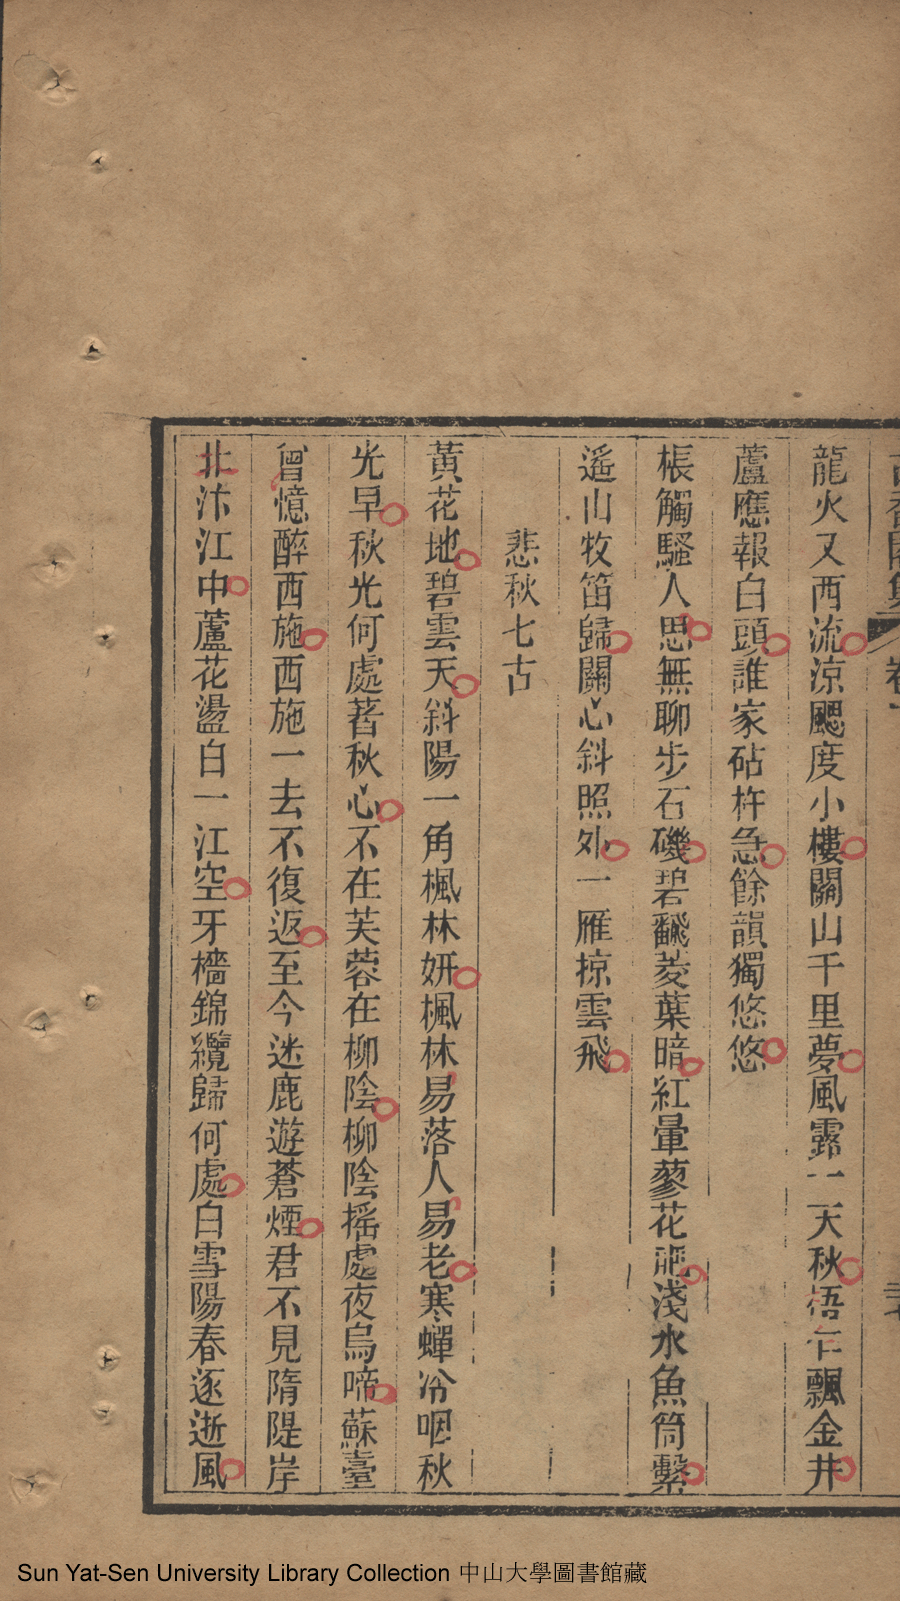 龍火又西流涼颸度小樓關山千里夢風露一天秋梧乍飄金井
蘆應報白頭誰家砧杵急餘韻獨悠悠
棖觸騷人思無聊步石磯碧飜菱葉暗紅暈蓼花肥淺水魚筒繫
遥山牧笛歸關心斜照外一雁掠雲飛
悲秋七古
黃花地碧雲天斜陽一角楓林妍楓林易落人易老寒蟬冷咽秋
光早秋光何處著秋心不在芙蓉在柳陰柳陰摇處夜烏啼蘇臺
曾憶醉西施西施一去不復返至今迷鹿遊蒼煙君不見隋隄岸
北汴江中蘆花盪白一江空牙檣錦纜歸何處白雪陽春逐逝風
Sun Yat-Sen University Library Collection 中山大學圖書館藏